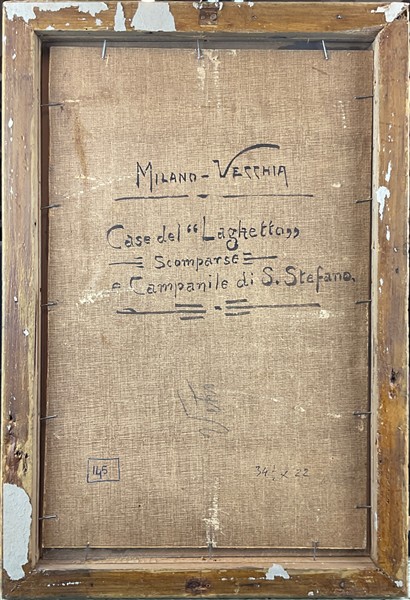 MILANO-VECCHIA
Case del "Laghetto"
Scomparse
e Campanile di S. Stefano.
145
34½ x 22